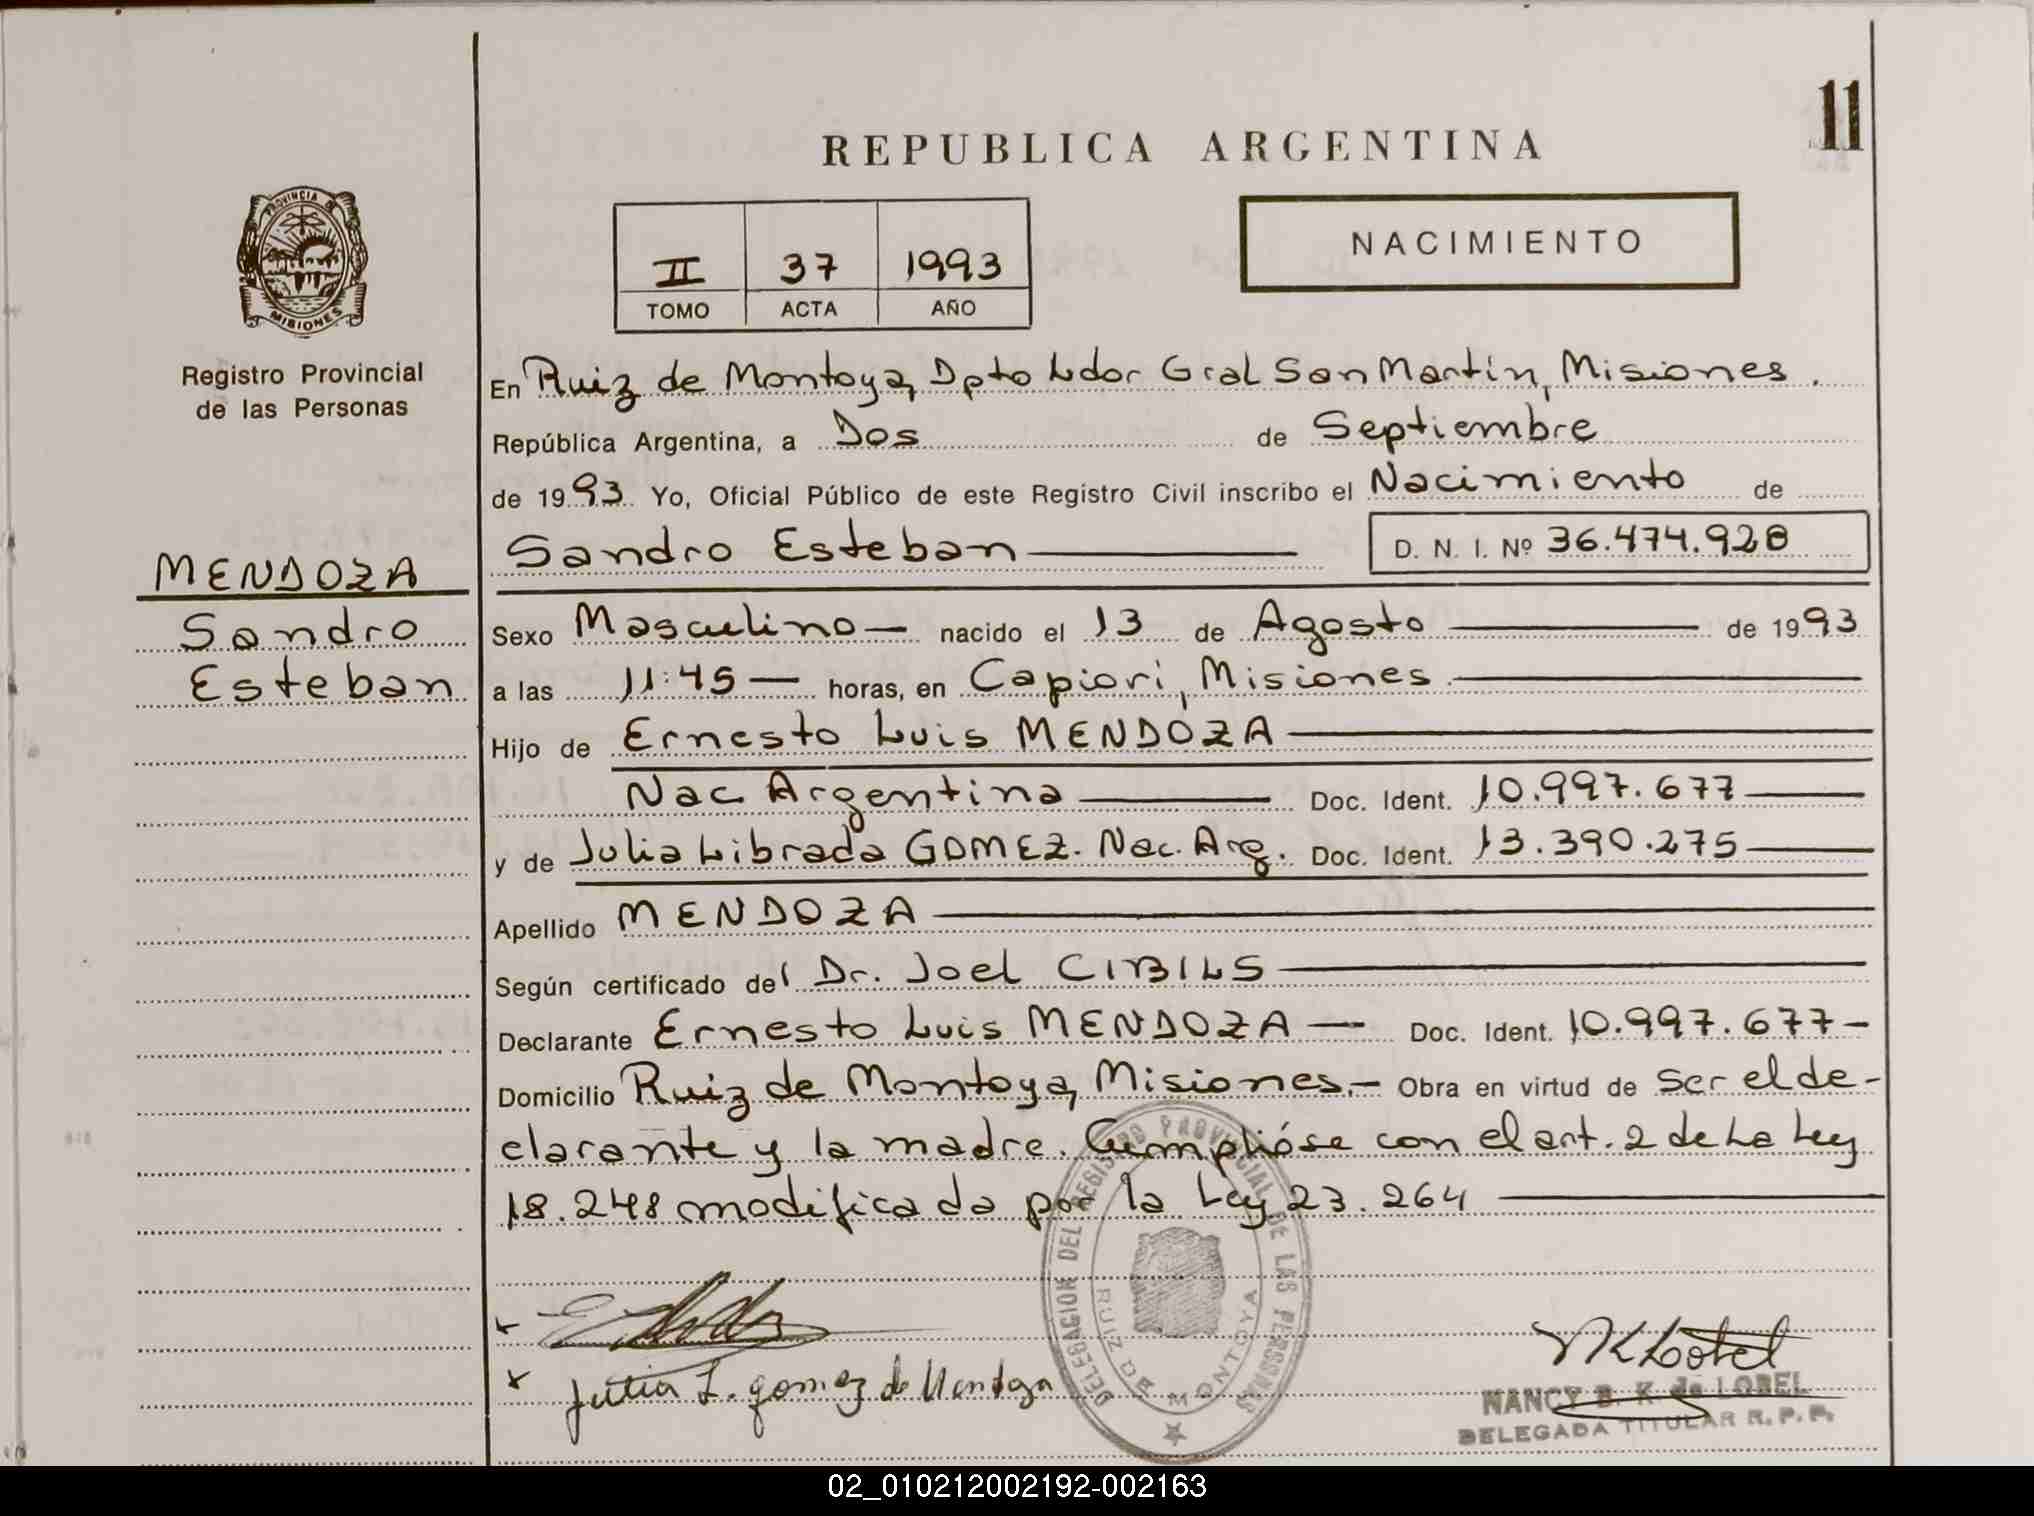 REPUBLICA ARGENTINA
11
PROVINCIA DE
MISIONES
Registro Provincial
de las Personas
II 37 1993
TOMO ACTA AÑO
NACIMIENTO
En Ruiz de Montoya, Dpto Ldor Gral San Martín, Misiones.
República Argentina, a Dos de Septiembre
de 1993 Yo, Oficial Público de este Registro Civil inscribo el Nacimiento de
Sandro Esteban D. N. I. Nº 36.474.928
MENDOZA
Sandro
Esteban
Sexo Masculino — nacido el 13 de Agosto de 1993
a las 11:45 — horas, en Capiovi, Misiones
Hijo de Ernesto Luis MENDOZA
Nac Argentina Doc. Ident. 10.997.677
y de Julia Librada GOMEZ. Nac. Arg. Doc. Ident. 13.390.275
Apellido MENDOZA
Según certificado del Dr. Joel CIBILS
Declarante Ernesto Luis MENDOZA — Doc. Ident. 10.997.677-
Domicilio Ruiz de Montoya, Misiones.- Obra en virtud de ser el de-
clarante y la madre. Cumplióse con el art. 2 de La Ley
18.248 modificada por la Ley 23.264
DELEGACION DEL REGISTRO PROVINCIAL DE LAS PERSONAS
RUIZ DE MONTOYA
x
x Julia L. gomez de Mendoza
NANCY B. K. de LOBEL
DELEGADA TITULAR R. P. P.
02_010212002192-002163